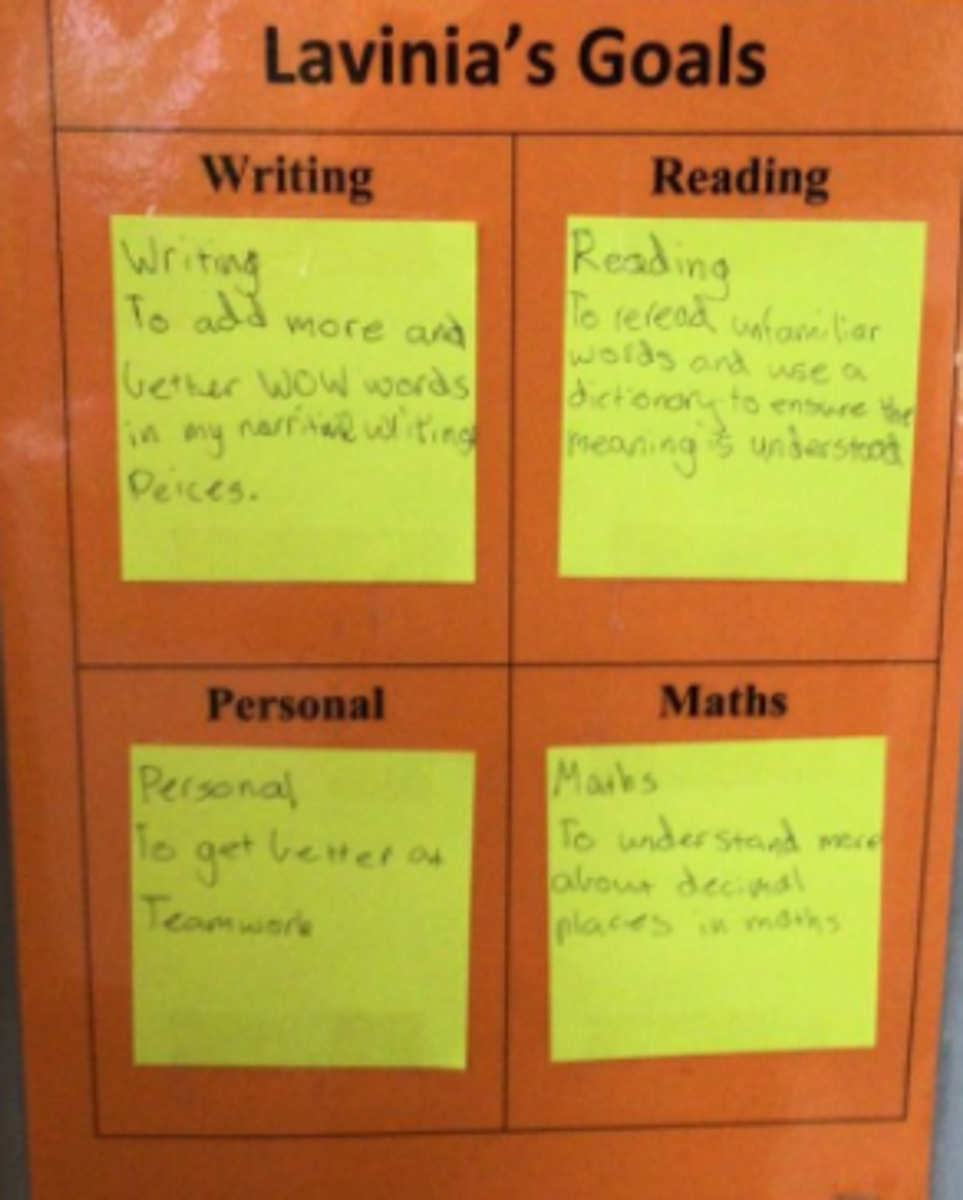 Lavinia's Goals
Writing
Writing
To add more and
better WOW words
in my narritive writing
Peices.
Reading
Reading
To reread unfamiliar
words and use a
dictionary to ensure the
meaning is understood
Personal
Personal
To get better at
Teamwork
Maths
Maths
To understand more
about decimal
places in maths